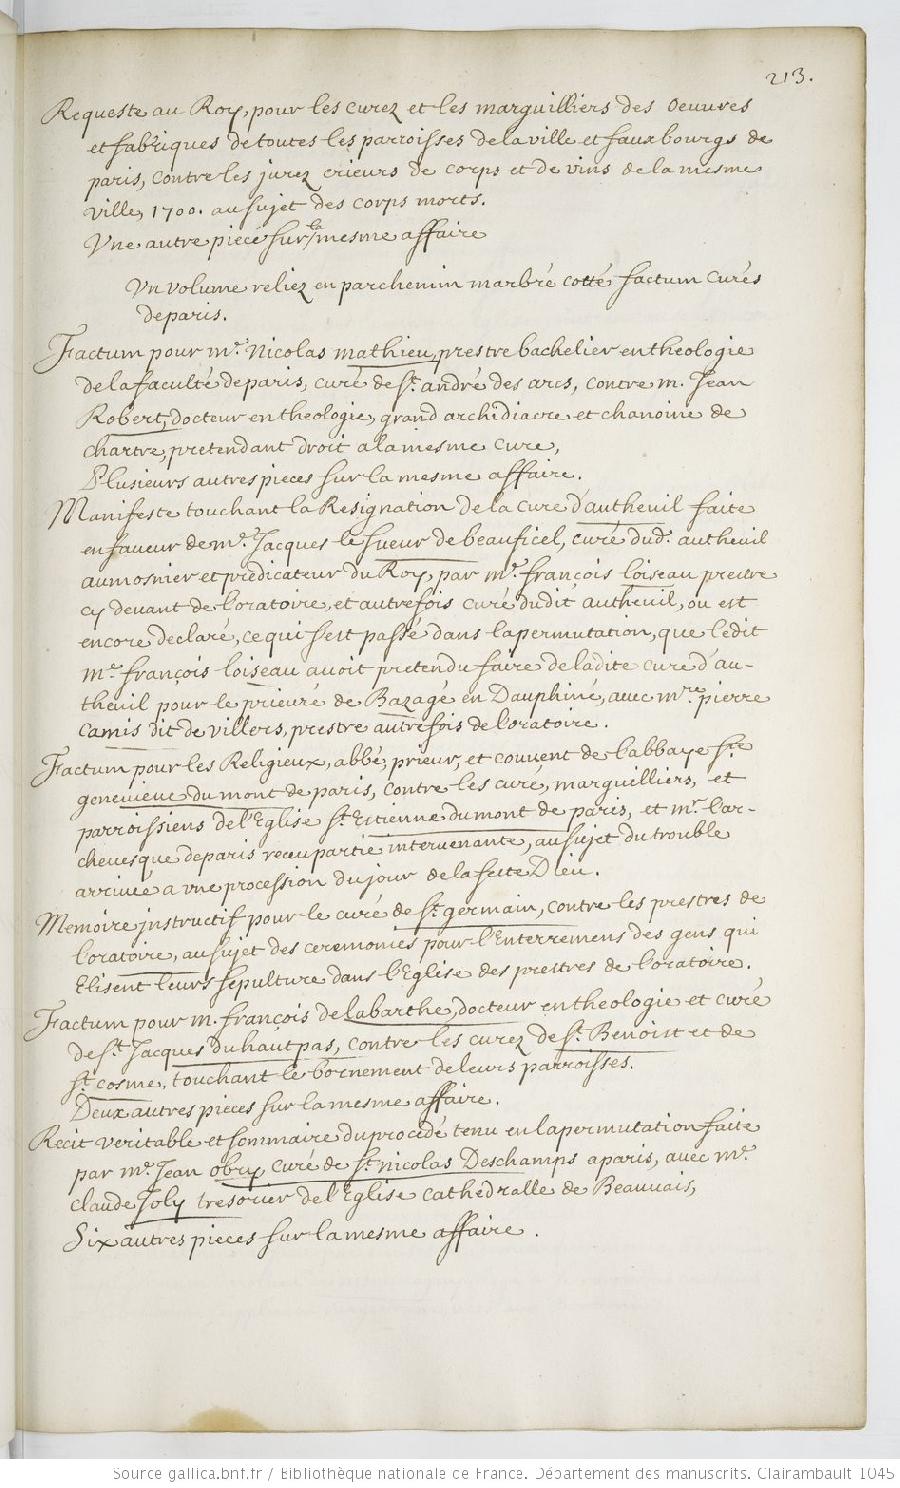 213.
Requeste au Roy, pour les curez et les marguilliers des oeuvres
et fabriques de toutes les parroisses de la ville et faux bourgs de
paris, contre les jurez crieurs de corps et de vins de la mesme
ville, 1700. au sujet des corps morts.
Vne autre piece sur la mesme affaire
Vn volume reliez en parchemin marbré cotté factum curés
de paris.
Factum pour mr. Nicolas mathieu, prestre bachelier en theologie
de la faculté de paris, curé de st. andré des arcs, contre m. Jean
Robert, docteur en theologie, grand archidiacre et chanoine de
chartre, pretendant droit a la mesme cure,
Plusieurs autres pieces sur la mesme affaire.
Manifeste touchant la Resignation de la cure d'autheuil faite
en faveur de me. Jacques le sueur de beauficel, curé dud. autheuil
aumosnier et prédicateur du Roy, par me. françois loiseau prestre
cy devant de l'oratoire, et autrefois curé dudit autheuil, ou est
encore declaré, ce qui s'est passé dans la permutation, que ledit
me. françois loiseau avoit pretendu faire de ladite cure d'au-
theuil pour le prieuré de Bazage en Dauphiné, avec mre. pierre
camis dit de villers, prestre autrefois de l'oratoire.
Factum pour les Religieux, abbé, prieur, et couvent de l'abbaye ste
genevieve du mont de paris, contre les curé, marguilliers, et
parroissiens de l'Eglise st. Estienne du mont de paris, et mr. l'ar-
chevesque de paris receu partie intervenante, au sujet du trouble
arrivée a vne procession du jour de la feste Dieu.
Memoire instructif pour le curé de st. germain, contre les prestres de
l'oratoire, au sujet des ceremonies pour l'Enterremens des gens qui
Elisent leurs sepulture dans l'Eglise des prestres de l'oratoire.
Factum pour m. françois de labarthe, docteur en theologie et curé
de st. Jacques du haut pas, contre les curez de st. Benoist et de
st. cosme, touchant le bornement de leurs parroisses.
Deux autres pieces sur la mesme affaire.
Recit veritable et sommaire du procidé tenu en la permutation faite
par me. Jean obry curé de st. nicolas Deschamps a paris, avec me.
claude Joly tresorier de l'Eglise cathedralle de Beauvais,
Six autres pieces sur la mesme affaire.
Source gallica.bnf.fr / Bibliothèque nationale de France. Département des manuscrits. Clairambault 1045